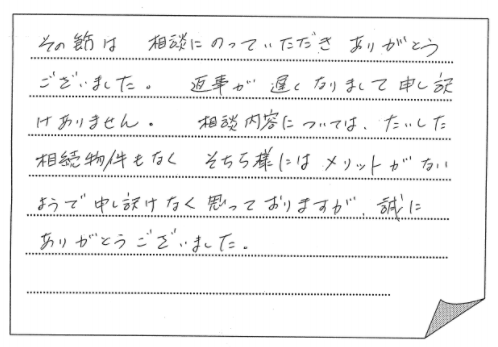 その節は 相談にのっていただき ありがとう
ございました。 返事が 遅くなりまして 申し訳
けありません。 相談内容については、たいした
相続物件もなく そちら様には メリットがない
ようで 申し訳けなく思っておりますが、誠に
ありがとうございました。